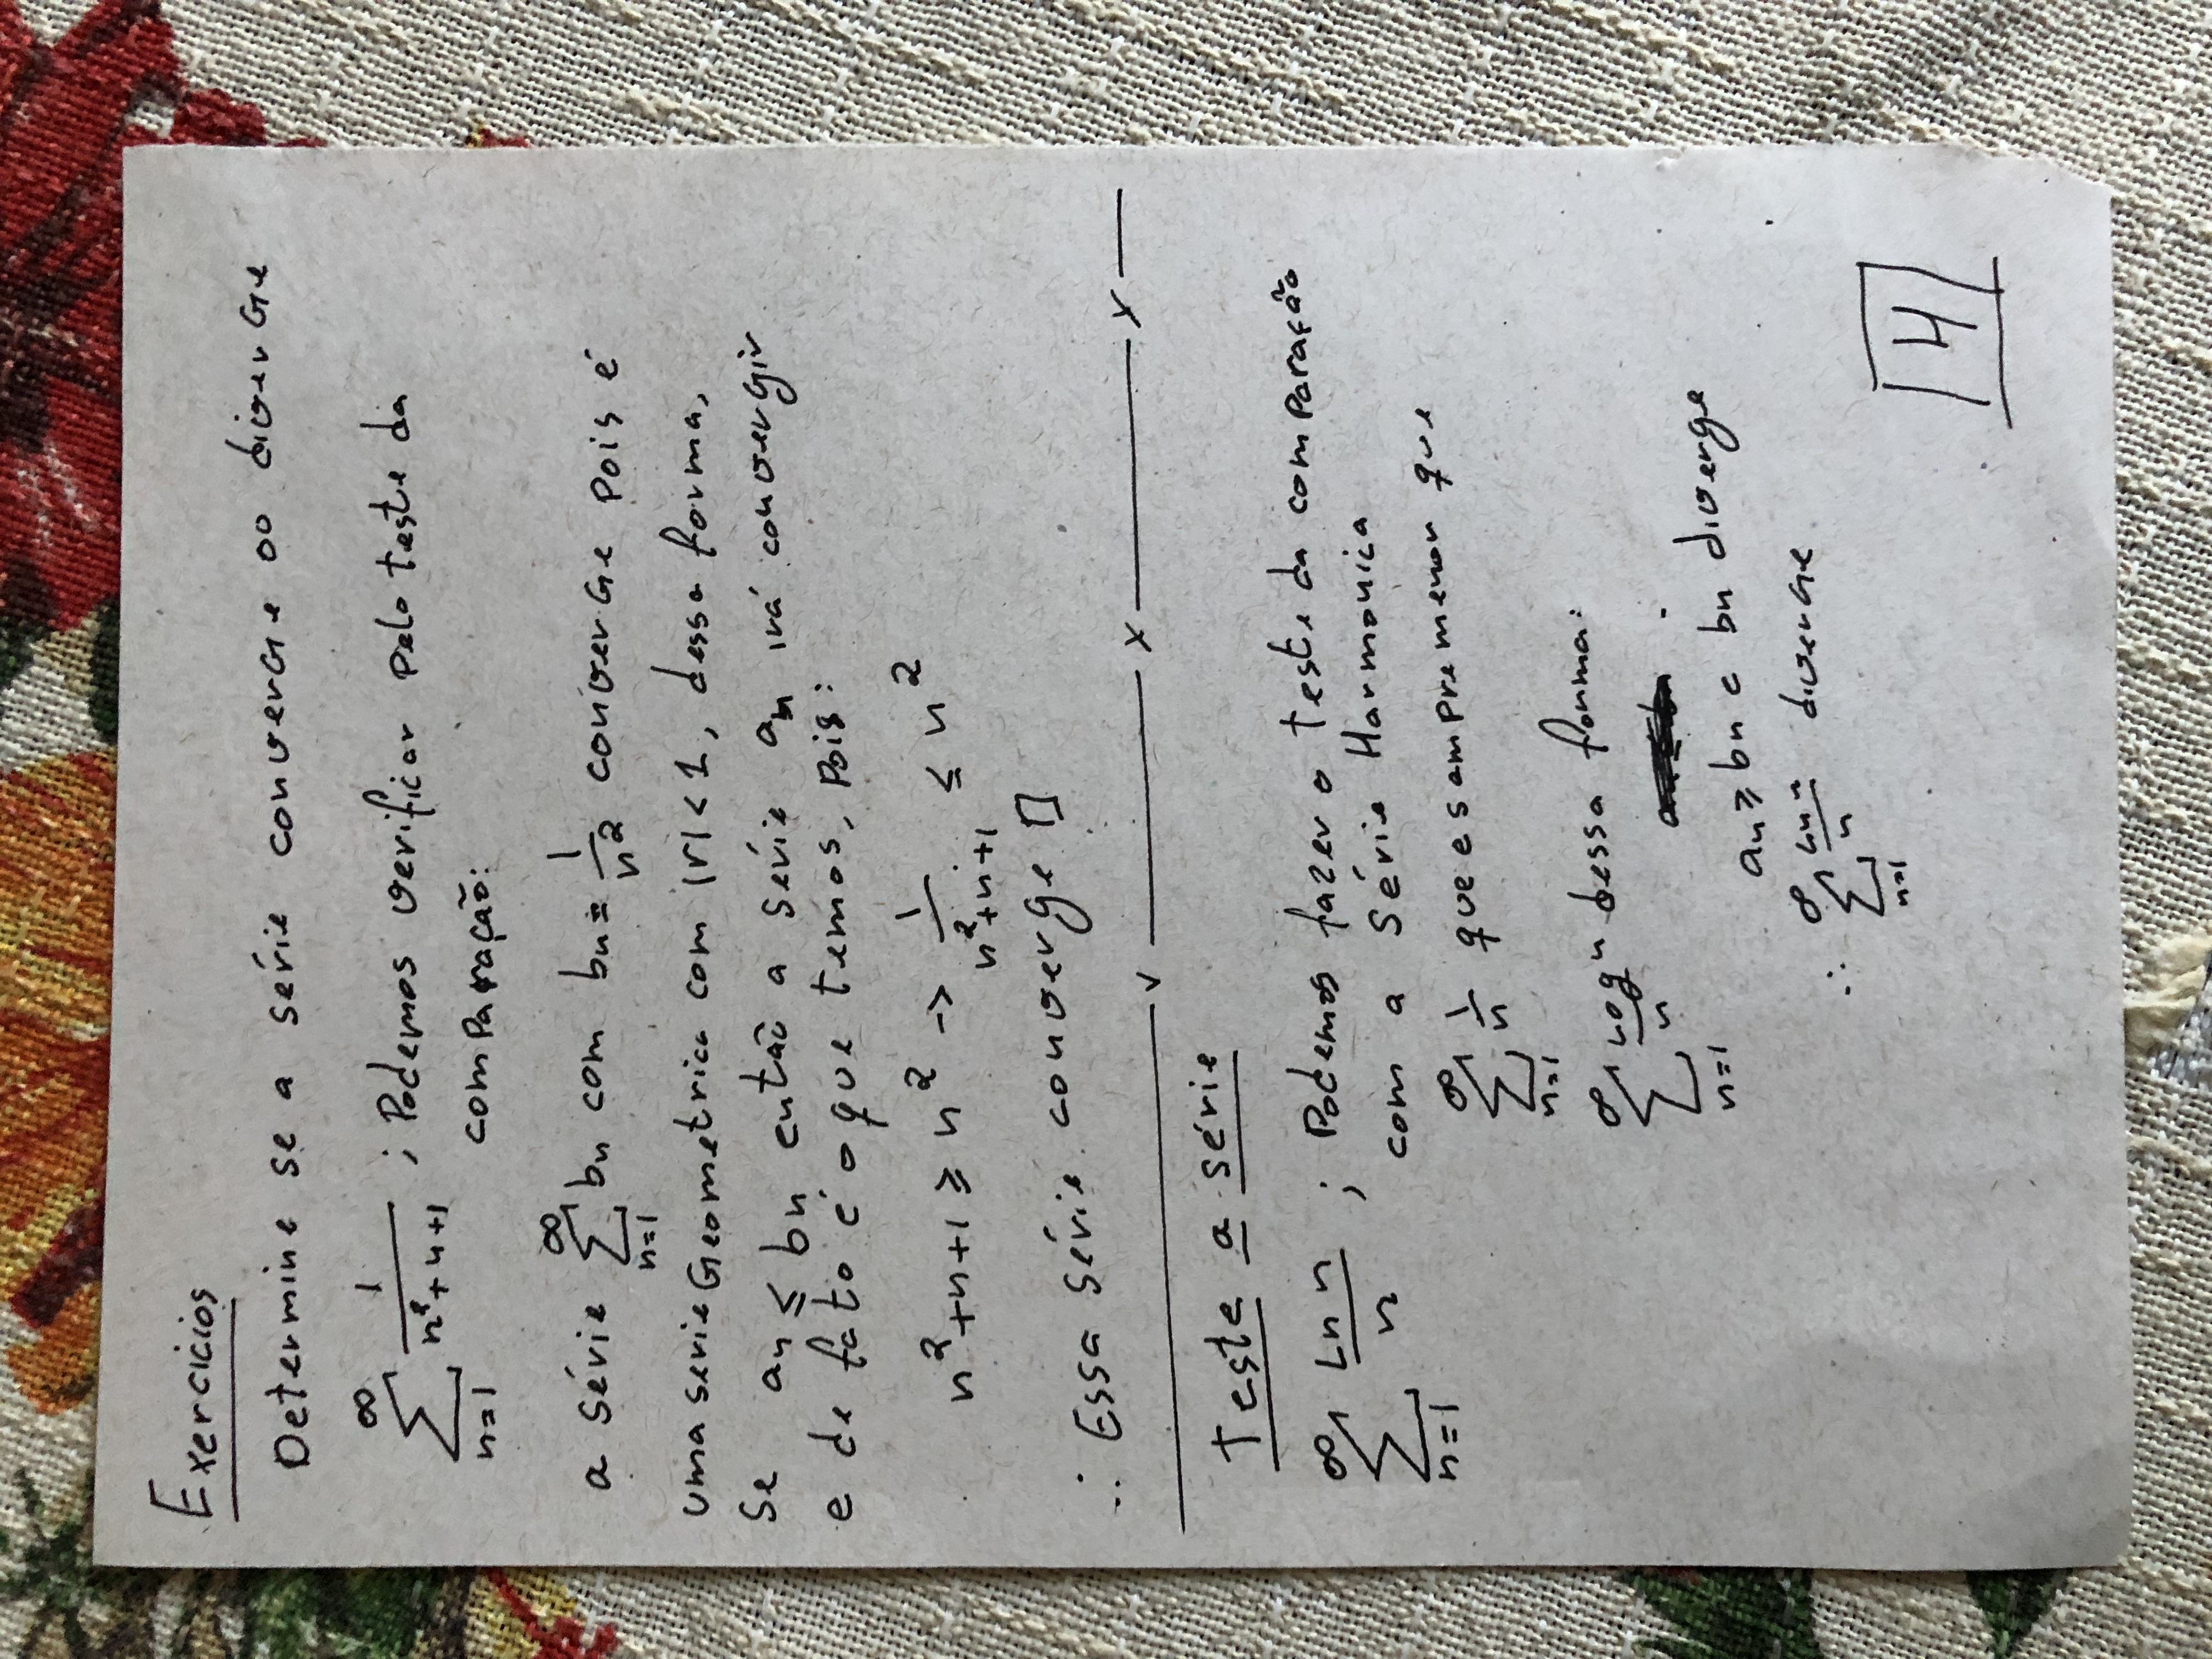 Exercicios
Determine se a série converge ou diverge
∞
∑ 1/(n²+n+1) ; Podemos verificar pelo teste da
n=1 comparação:
∞
a série ∑ bn com bn = 1/n² converge pois é
n=1
uma serie Geometrica com |r| < 1, dessa forma,
se an ≤ bn então a série an irá convergir
e de fato é o que temos, pois:
n²+n+1 ≥ n² -> 1/(n²+n+1) ≤ n²
∴ Essa série converge □
Teste a série
∞
∑ Ln n/n ; Podemos fazer o teste da comparação
n=1 com a Série Harmonica
∞
∑ 1/n que e sempre menor que
n=1
∞
∑ Log n/n dessa forma:
n=1
an ≥ bn e bn diverge
∞
∴ ∑ Ln n/n diverge
n=1
4